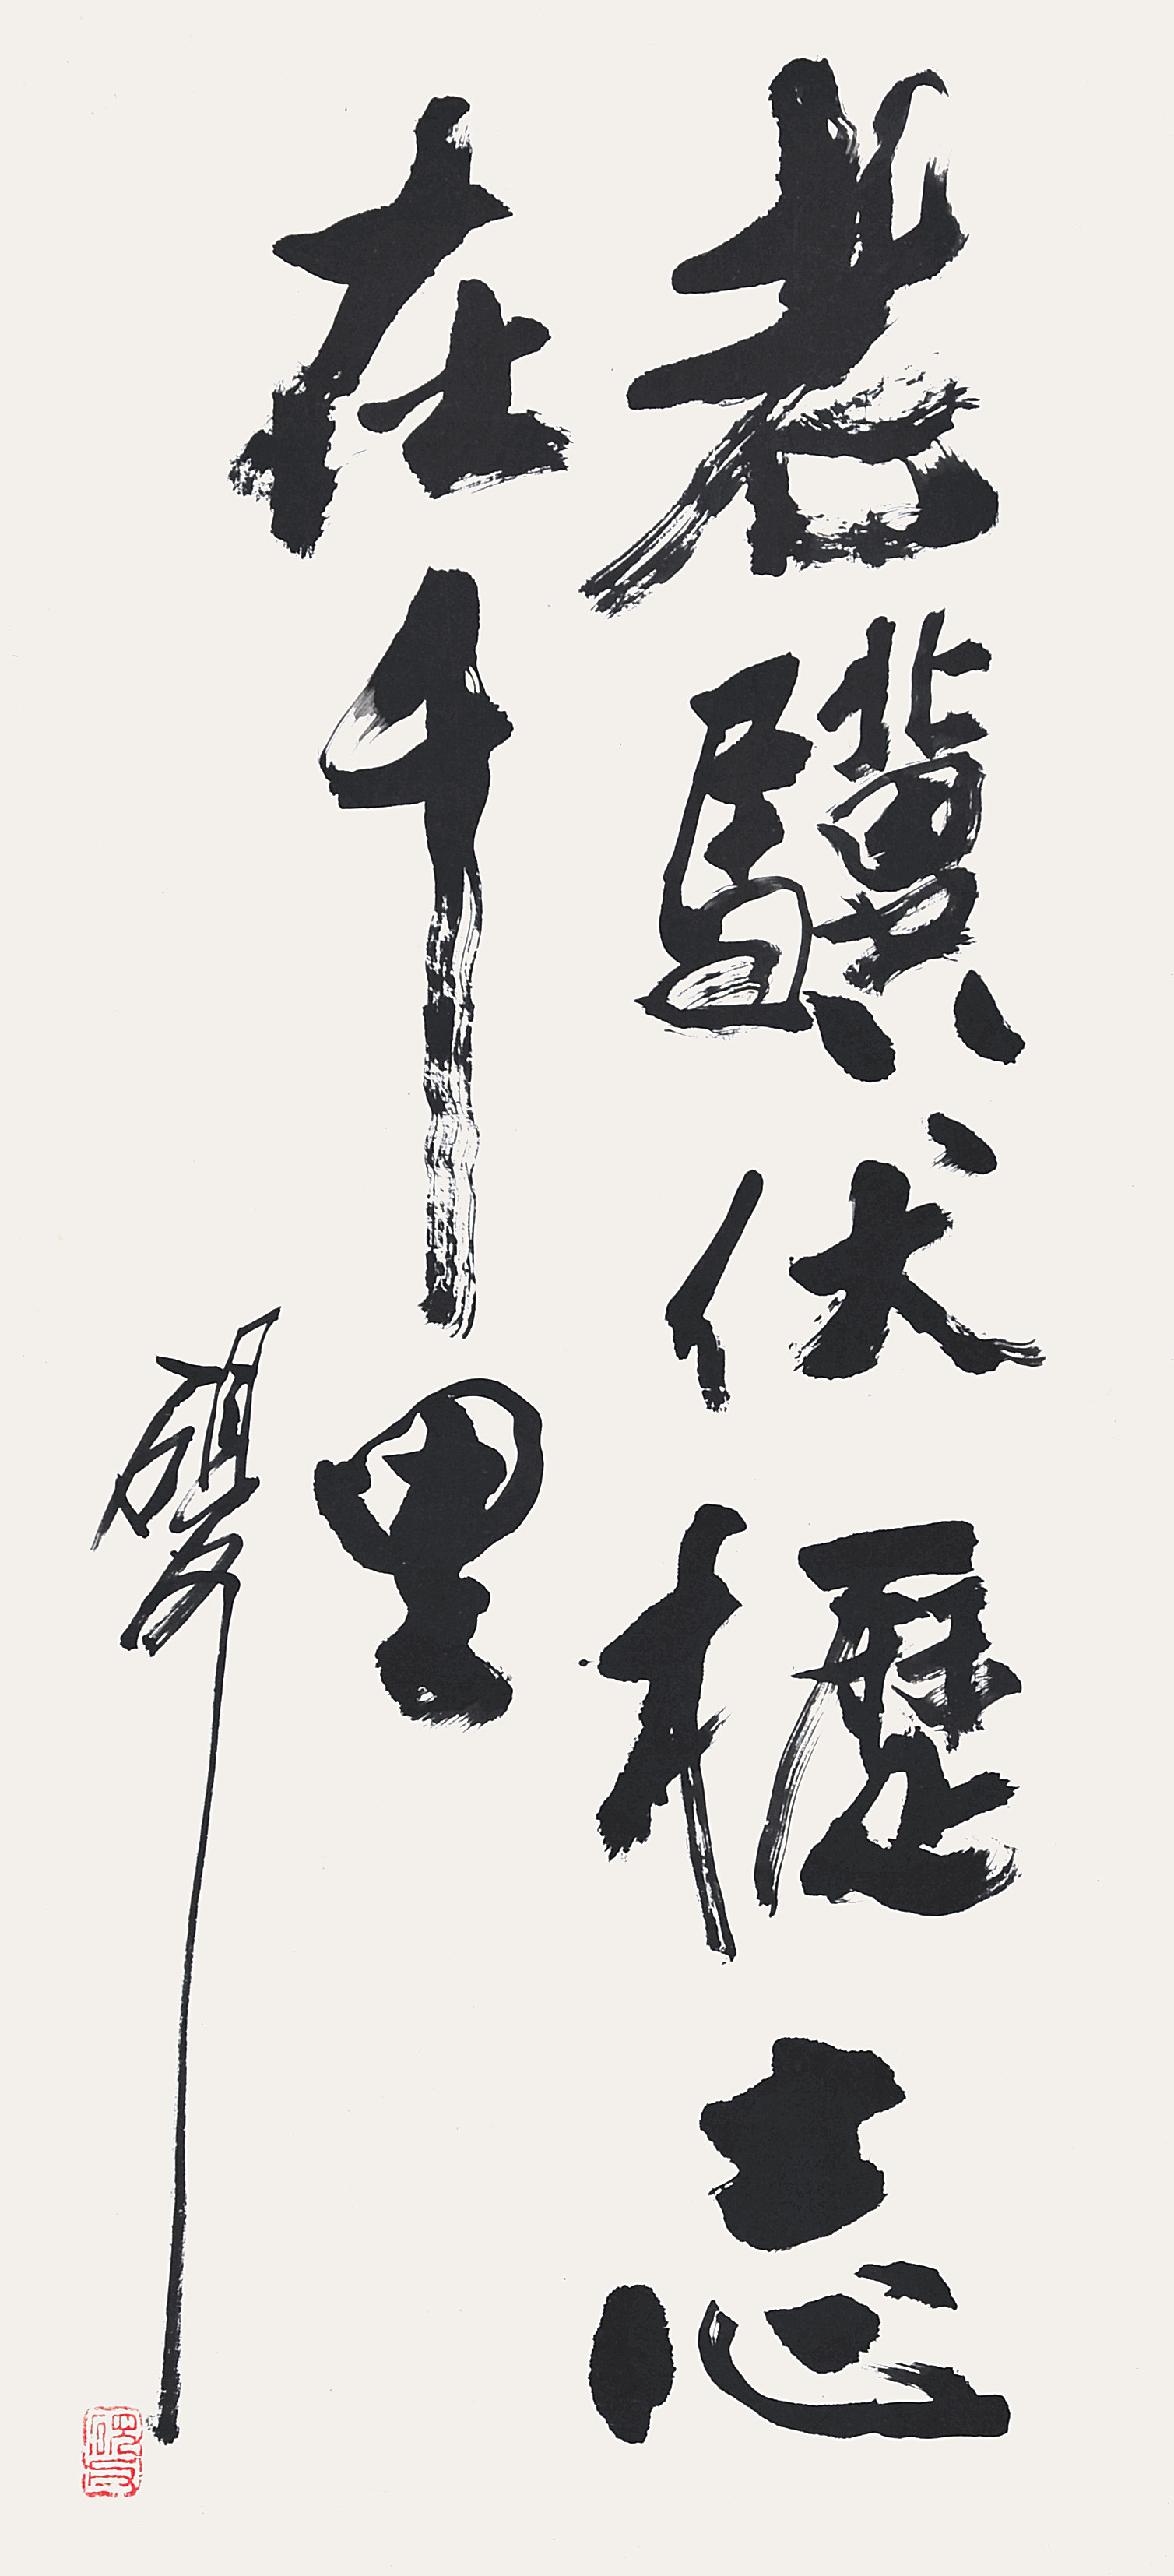 老驥伏櫪志
在千里